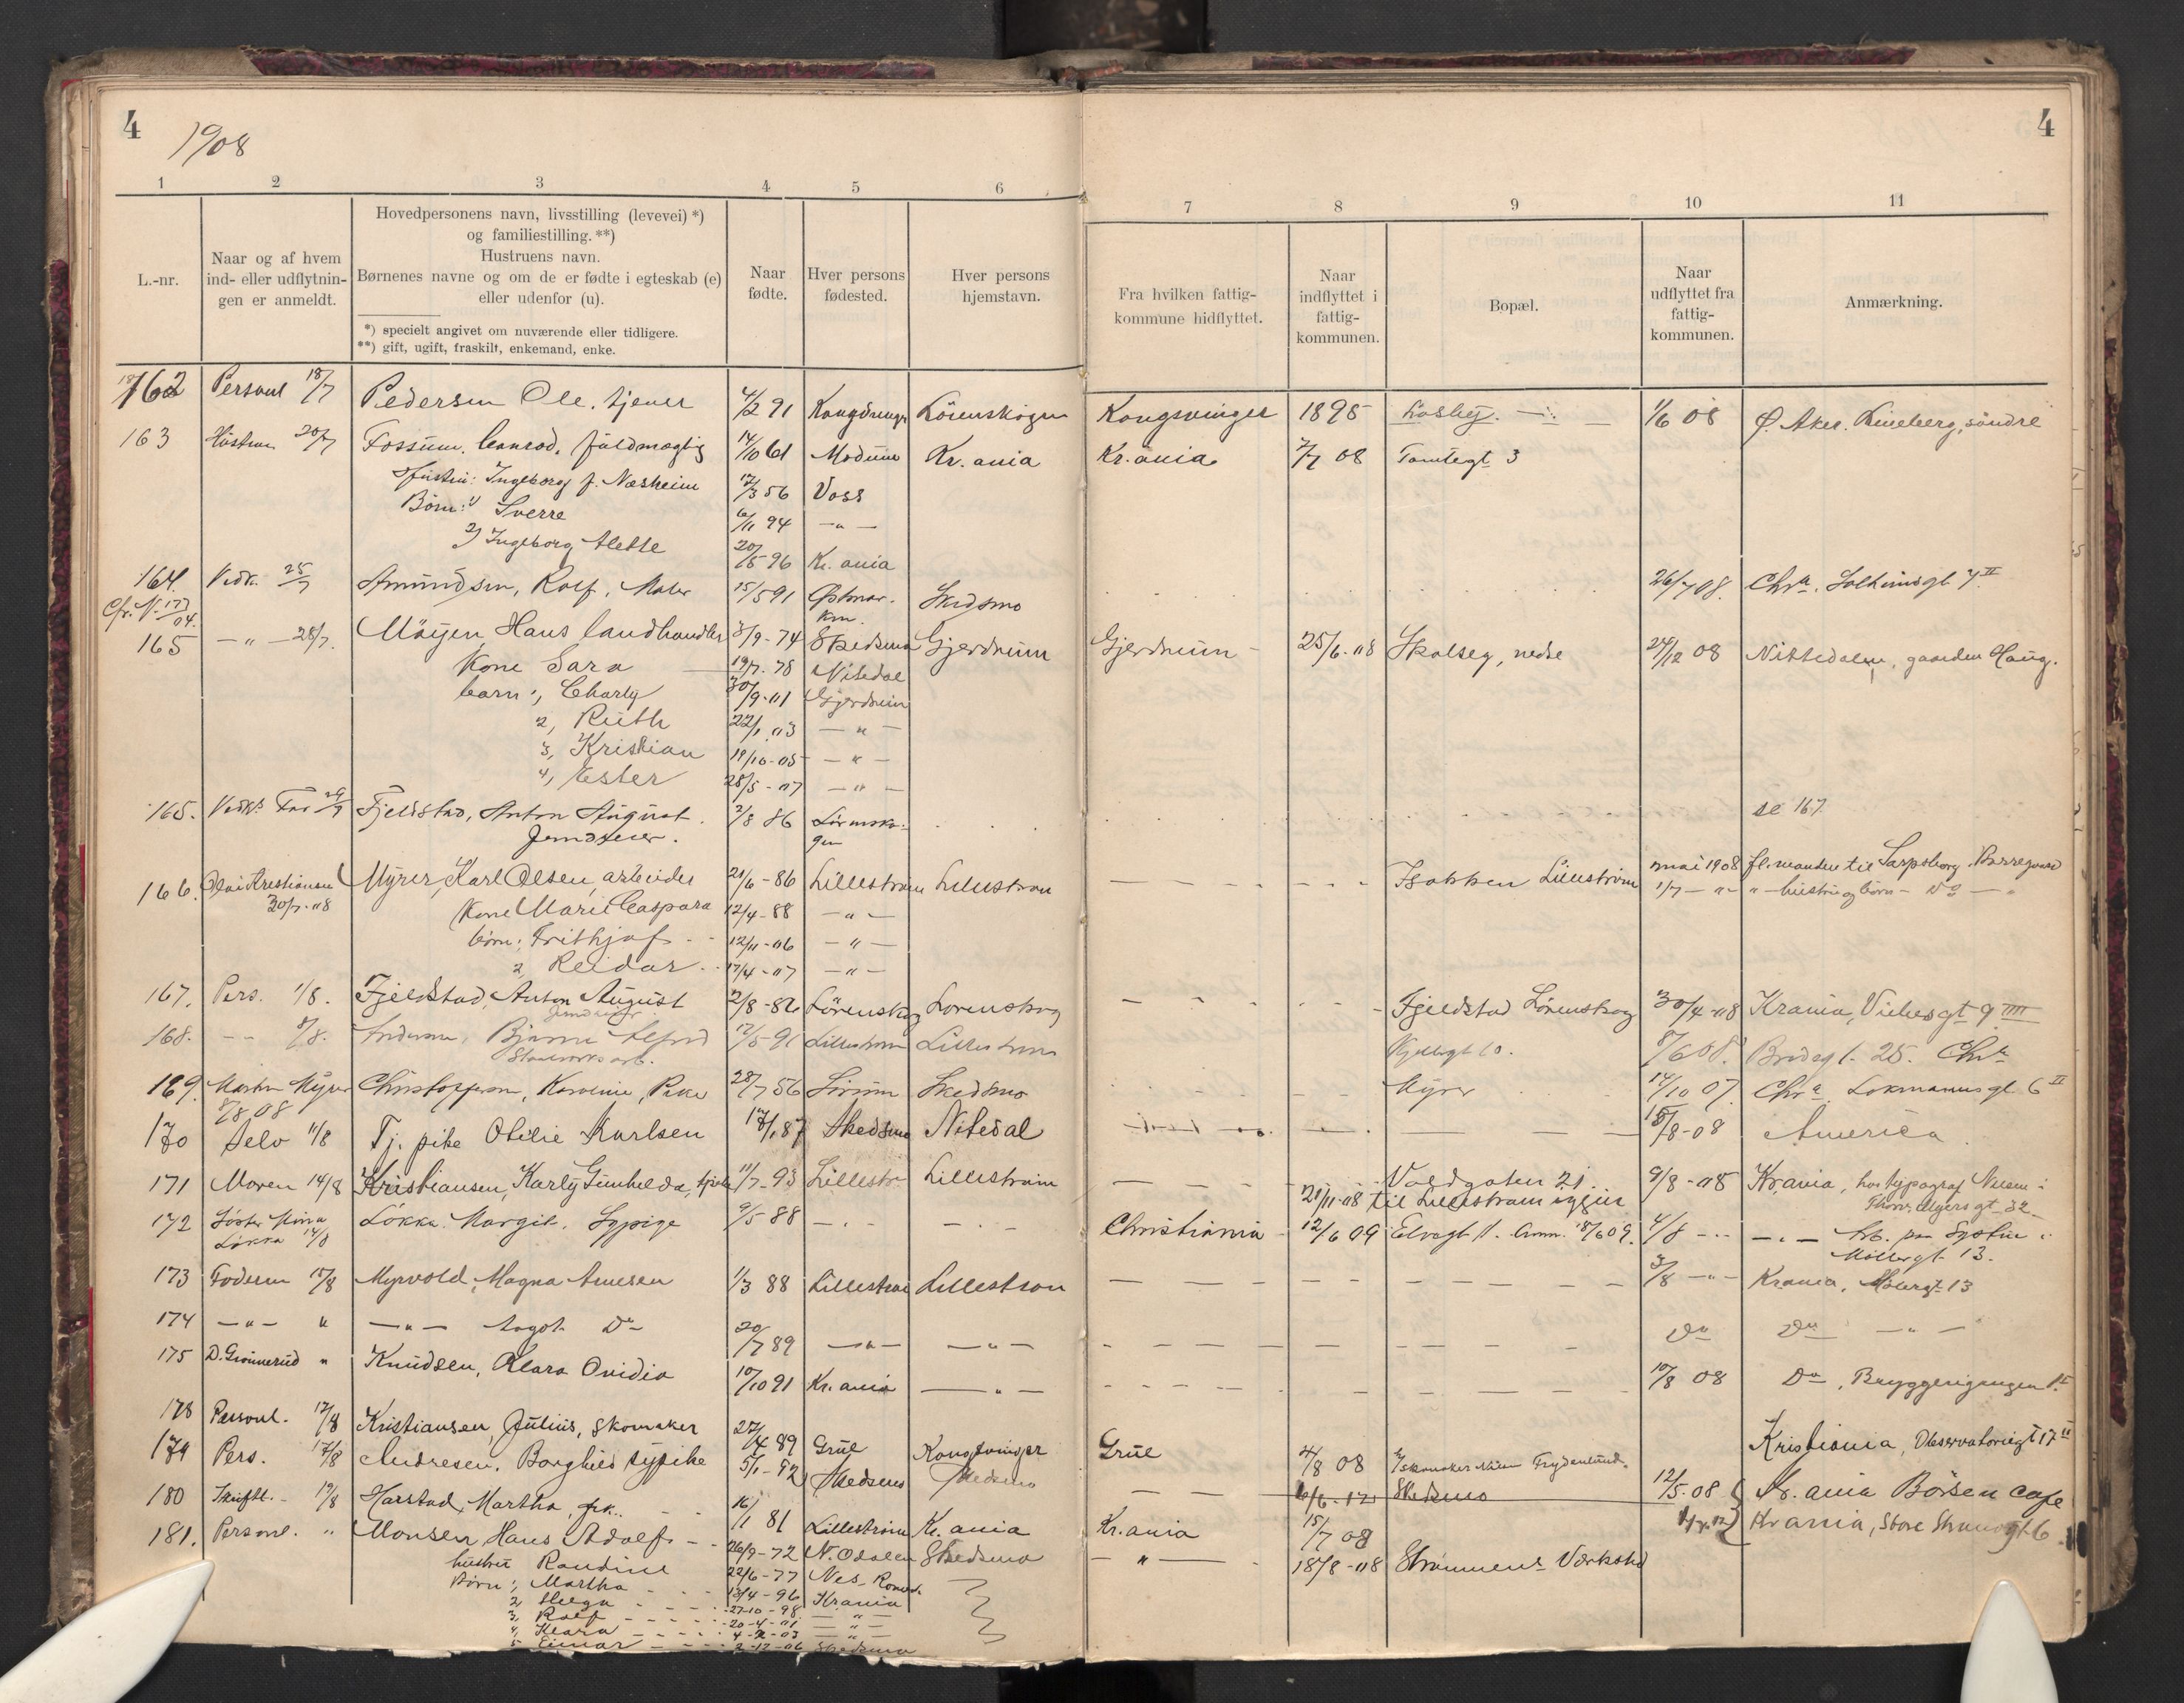 4
1908
4
1 2 3 4 5 6 7 8 9 10 11
L.-nr.
Naar og af hvem ind- eller udflytnin- gen er anmeldt.
Hovedpersonens navn, livsstilling (levevei) *)
og familiestilling. **)
Hustruens navn.
Børnenes navne og om de er fødte i egteskab (e)
eller udenfor (u).
*) specielt angivet om nuværende eller tidligere.
**) gift, ugift, fraskilt, enkemand, enke.
Naar fødte.
Hver persons fødested.
Hver persons hjemstavn.
Fra hvilken fattig- kommune hidflyttet.
Naar indflyttet i fattig- kommunen.
Bopæl.
Naar udflyttet fra fattig- kommunen.
Anmærkning.
162 Personl 18/7 Pedersen Ole, tjener 4/2 91 Lörenskogen Kongsvinger 1895 Losby 1/6 08 Ø. Aker. Lineberg, söndre
163 Hustruen 20/7 Fossum, Conrad, fuldmægtig 14/10 61 Modum Kr.ania Kr.ania 7/7 08 Tomtegt 3
Hustru: Ingeborg f. Næsheim 17/3 56 Voss
Börn: 1) Sverre 6/11 94 — " —
2) Ingeborg Alette 20/5 96 Kr.ania
164. Vedk. 25/7 Amundsen, Rolf, Maler 15/5 91 Skedsmo 26/7 08. Chra.
Cfr. N. 173/04.
165 — " — 28/7. Möijen, Hans landhandler 3/9-74 Skedsmo Gjerdrum Gjerdrum 25/6-08 Skalseg, nedre 24/12 08 Nittedalen, gaarden Haug.
Kone Sara 19/7-78 Nitedal
barn 1, Charly 30/9-01 Gjerdrum
2, Ruth 22/1 03 — " —
3, Kristian 19/10-05 — " —
4, Ester 28/5-07 — " —
165. Vedk. Far 29/7 Fjeldstad, Anton August. 2/8 86 Lörensko- gen se 167
166. Olai Kristiansen 30/7-08 Myrer, Karl Olsen, arbeider 21/6-86 Lilleström Lilleström Lilleström mai 1908 fl. manden til Sarpsborg, Borregaard
Kone Marie Caspara 12/4-88 — " — 1/7 — " — " — hustru og börn — Do — "
börn: Frithjof 12/11-06 — " —
2, Reidar 17/4-07 — " —
167. Pers. 1/8. Fjeldstad, Anton August 2/8-86 Lörenskog Lörenskog Fjeldstad Lörenskog 30/4-08 Krania, Vibesgt 9 IIII
168. — 8/8. Andersen, Bjarne Alfred 17/5-91 Lilleström Lilleström 8/6 08. Brodegt. 25. Chra
169. Martin Myrer 8/8 08 Christoffersen, Karoline, Pike 28/7 56 Sörum Skedsmo Myrer 14/10 07. Chra. Lokmannsgt 6 II
170 Selv 11/8 Tj. pike Otilie Karlsen 17/1 87 Skedsmo Nitedal 15/8-08 America.
171 Moren 14/8 Kristiansen, Karly Gunhilda, 11/7-93 Lillestr. Lilleström Voldgaten 21. 9/8-08 Krania, hos typograf Nilsen i
21/11-08 til Lilleström igjen Thorv. Myers gt 32
172 Söster Mina Løkka 14/8 Løkka Margit, Sypige 9/5 88 — " — — " — Christiania 12/6 09 Elvegt 1. Anm. 18/6 09. 4/8 — " — — " — Arb. paa Systue i
Möllergt. 13.
173 Faderen 15/8 Myrvold, Magna Arnesen 1/3 88 Lilleström Lilleström 3/8 — " — Krania, Möllergt 13
174 — " — " — " — Aagot Do 20/7 89 — " — — " — Do Do — " —
175 D. Grønnerud " Knudsen, Klara Ovidia 10/10 91 Kr.ania — " — 10/8 08 Do, Bryggerigangen
178 Personl. 17/8 Kristiansen, Julius, skomaker 27/4 89 Grue Kongsvinger Grue 4/8 08 Frydenlund. Kristiania, Observatoriegt 17 II
179 Pers. 17/8 Andresen, Borghild sypike 5/1-92 Skedsmo Skedsmo 6/6-12 Skedsmo 12/5-08 Kr.ania Börsen cafe
180 Skriftl. 19/8 Harstad, Martha, frk. 16/1 81 Lilleström Kr.ania Kr.ania 15/7 08 Krania, Store Strandgt 6
181. Personl. " Monsen, Hans Adolf 26/9-72 N. Odalen Skedsmo — " — 18/8-08 Strömmens Værksted
hustru Randine 22/6-77 Nes, Romerike
Börn 1, Martha 13/4-96 Krania
2, Helga 27-10-98 — " —
3, Rolf 20-4-01 — " —
4, Klara 4-2-03 — " —
5 Einar 2-12-06 Skedsmo